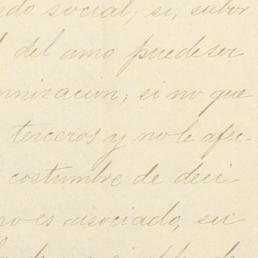 ndo social; si, subor
del amo puede ser
mnizacion; si no que
terceros y no le afec
costumbre de deci-
no es asociado, sir